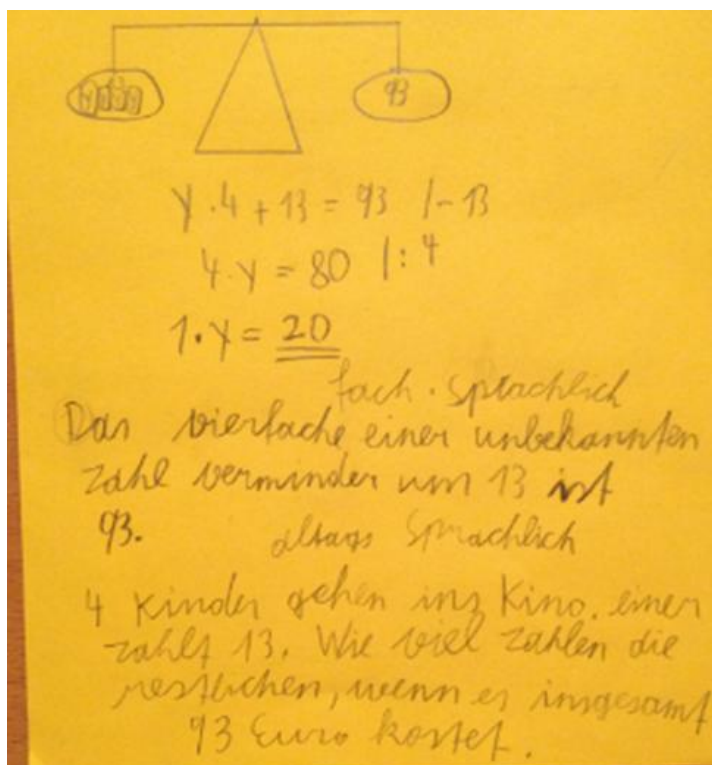 93
y · 4 + 13 = 93 /- 13
4 · y = 80 | : 4
1 · y = 20
fach · sprachlich
Das vierfache einer unbekannten
zahl verminder um 13 ist
93.
altags sprachlich
4 Kinder gehen ins Kino. einer
zahlt 13. Wie viel zahlen die
restlichen, wenn es insgesamt
93 Euro kostet.